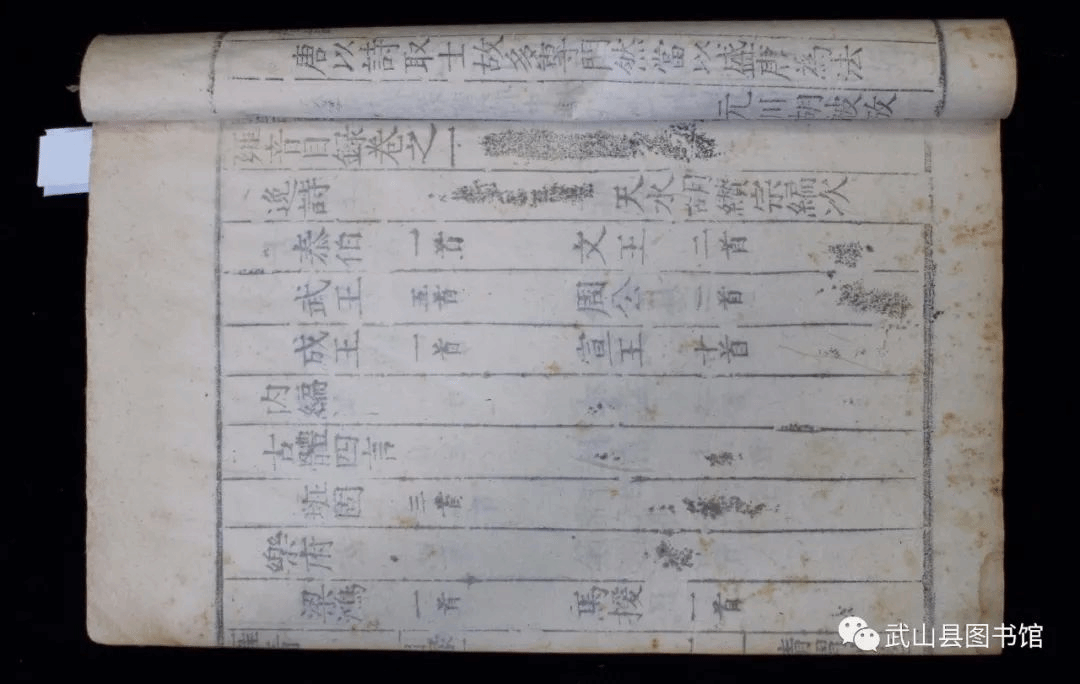 唐以詩取士故多專門然當以盛唐為法
雍音目錄卷之一
逸詩 天水胡纘宗編次
泰伯 一首 文王 二首
武王 五首 周公 一首
成王 一首 宣王 十首
內編
古體四言
班固 三首
樂府
梁鴻 一首 馬援 一首
武山县图书馆